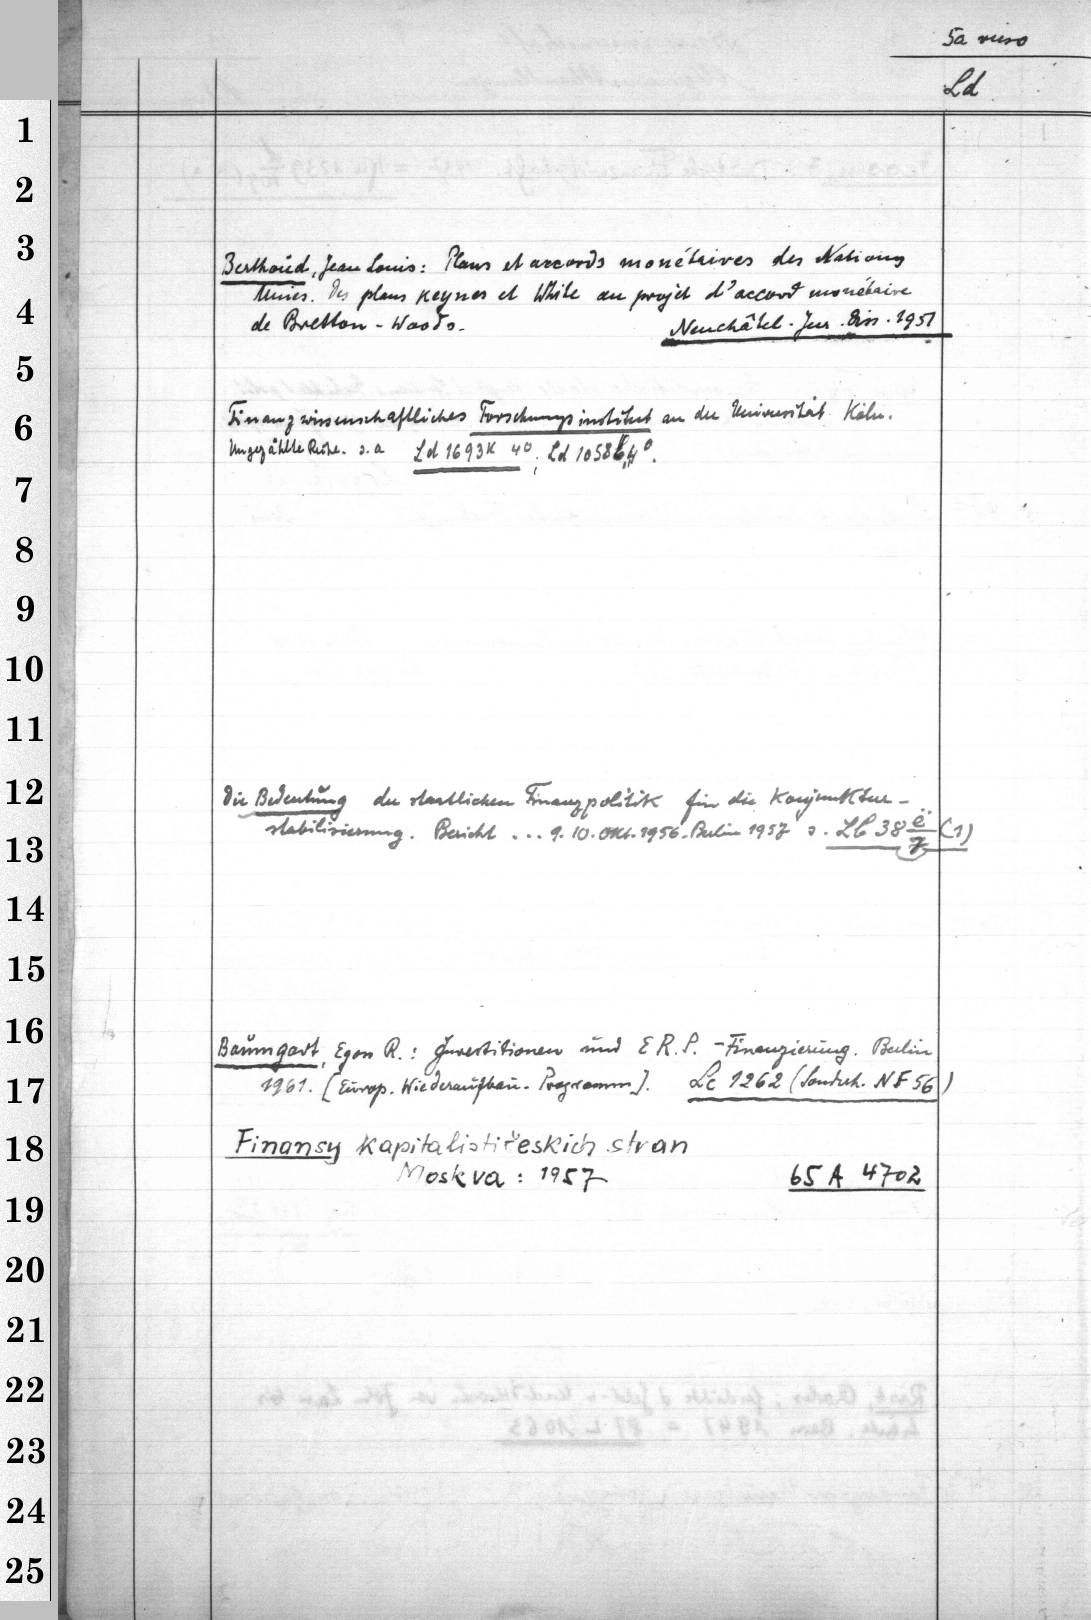 5a verso
Ld
1
2
3
Berthoud, Jean Louis: Plans et accords monétaires des Nations
4
Unies. Des plans Keynes et White au projet d'accord monétaire
de Bretton-Woods. Neuchâtel. Jur. Diss. 1951
5
6
Finanzwissenschaftliches Forschungsinstitut an der Universität Köln.
Ungezählte Reihe. s. a Ld 1693K 4°; Ld 1058 4°.
7
8
9
10
11
12
Die Bedeutung der staatlichen Finanzpolitik für die Konjunktur-
13
stabilisierung. Bericht ... 9. 10. Okt. 1956. Berlin 1957 s. Lb 38 é/7 (1)
14
15
16
Baumgart, Egon R.: Investitionen und E R. P. - Finanzierung. Berlin
17
1961. [Europ. Wiederaufbau-Programm]. Lc 1262 (Sonderh. NF 56)
18
Finansy kapitalističeskich stran
Moskva: 1957 65 A 4702
19
20
21
22
23
24
25